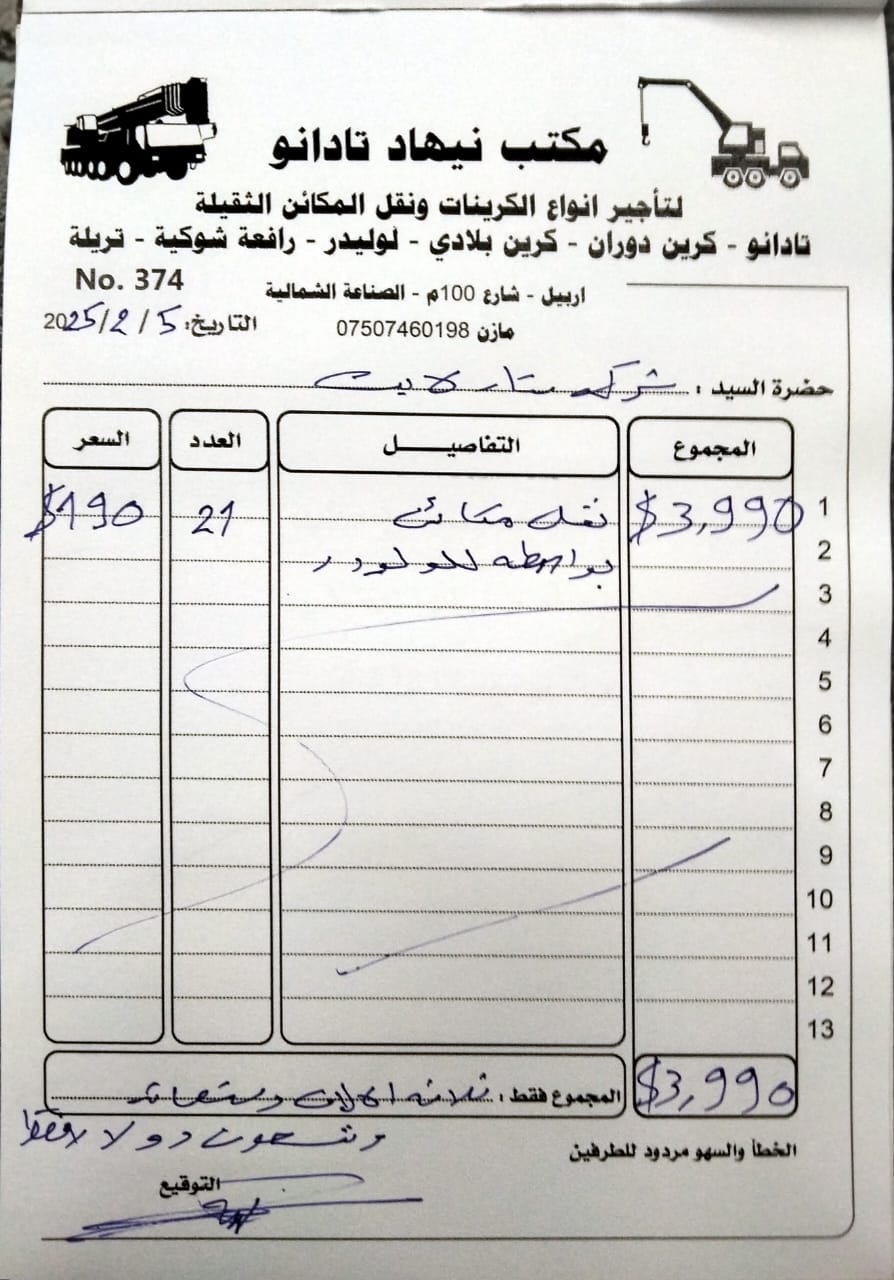 مكتب نيهاد تادانو
لتأجير انواع الكرينات ونقل المكائن الثقيلة
تادانو - كرين دوران - كرين بلادي - لوليدر - رافعة شوكية - تريلة
No. 374
اربيل - شارع 100م - الصناعة الشمالية
التاريخ: 5 / 2 / 2025
مازن 07507460198
حضرة السيد : شركه ستار لايت
المجموع التفاصيل العدد السعر
1 $3,990 نقل مكائن 21 $190
2 بواسطه للولودر
3
4
5
6
7
8
9
10
11
12
13
$3,990 المجموع فقط : ثلاثه الالاف وتسعمائه
وتسعون دولار فقط
الخطأ والسهو مردود للطرفين
التوقيع